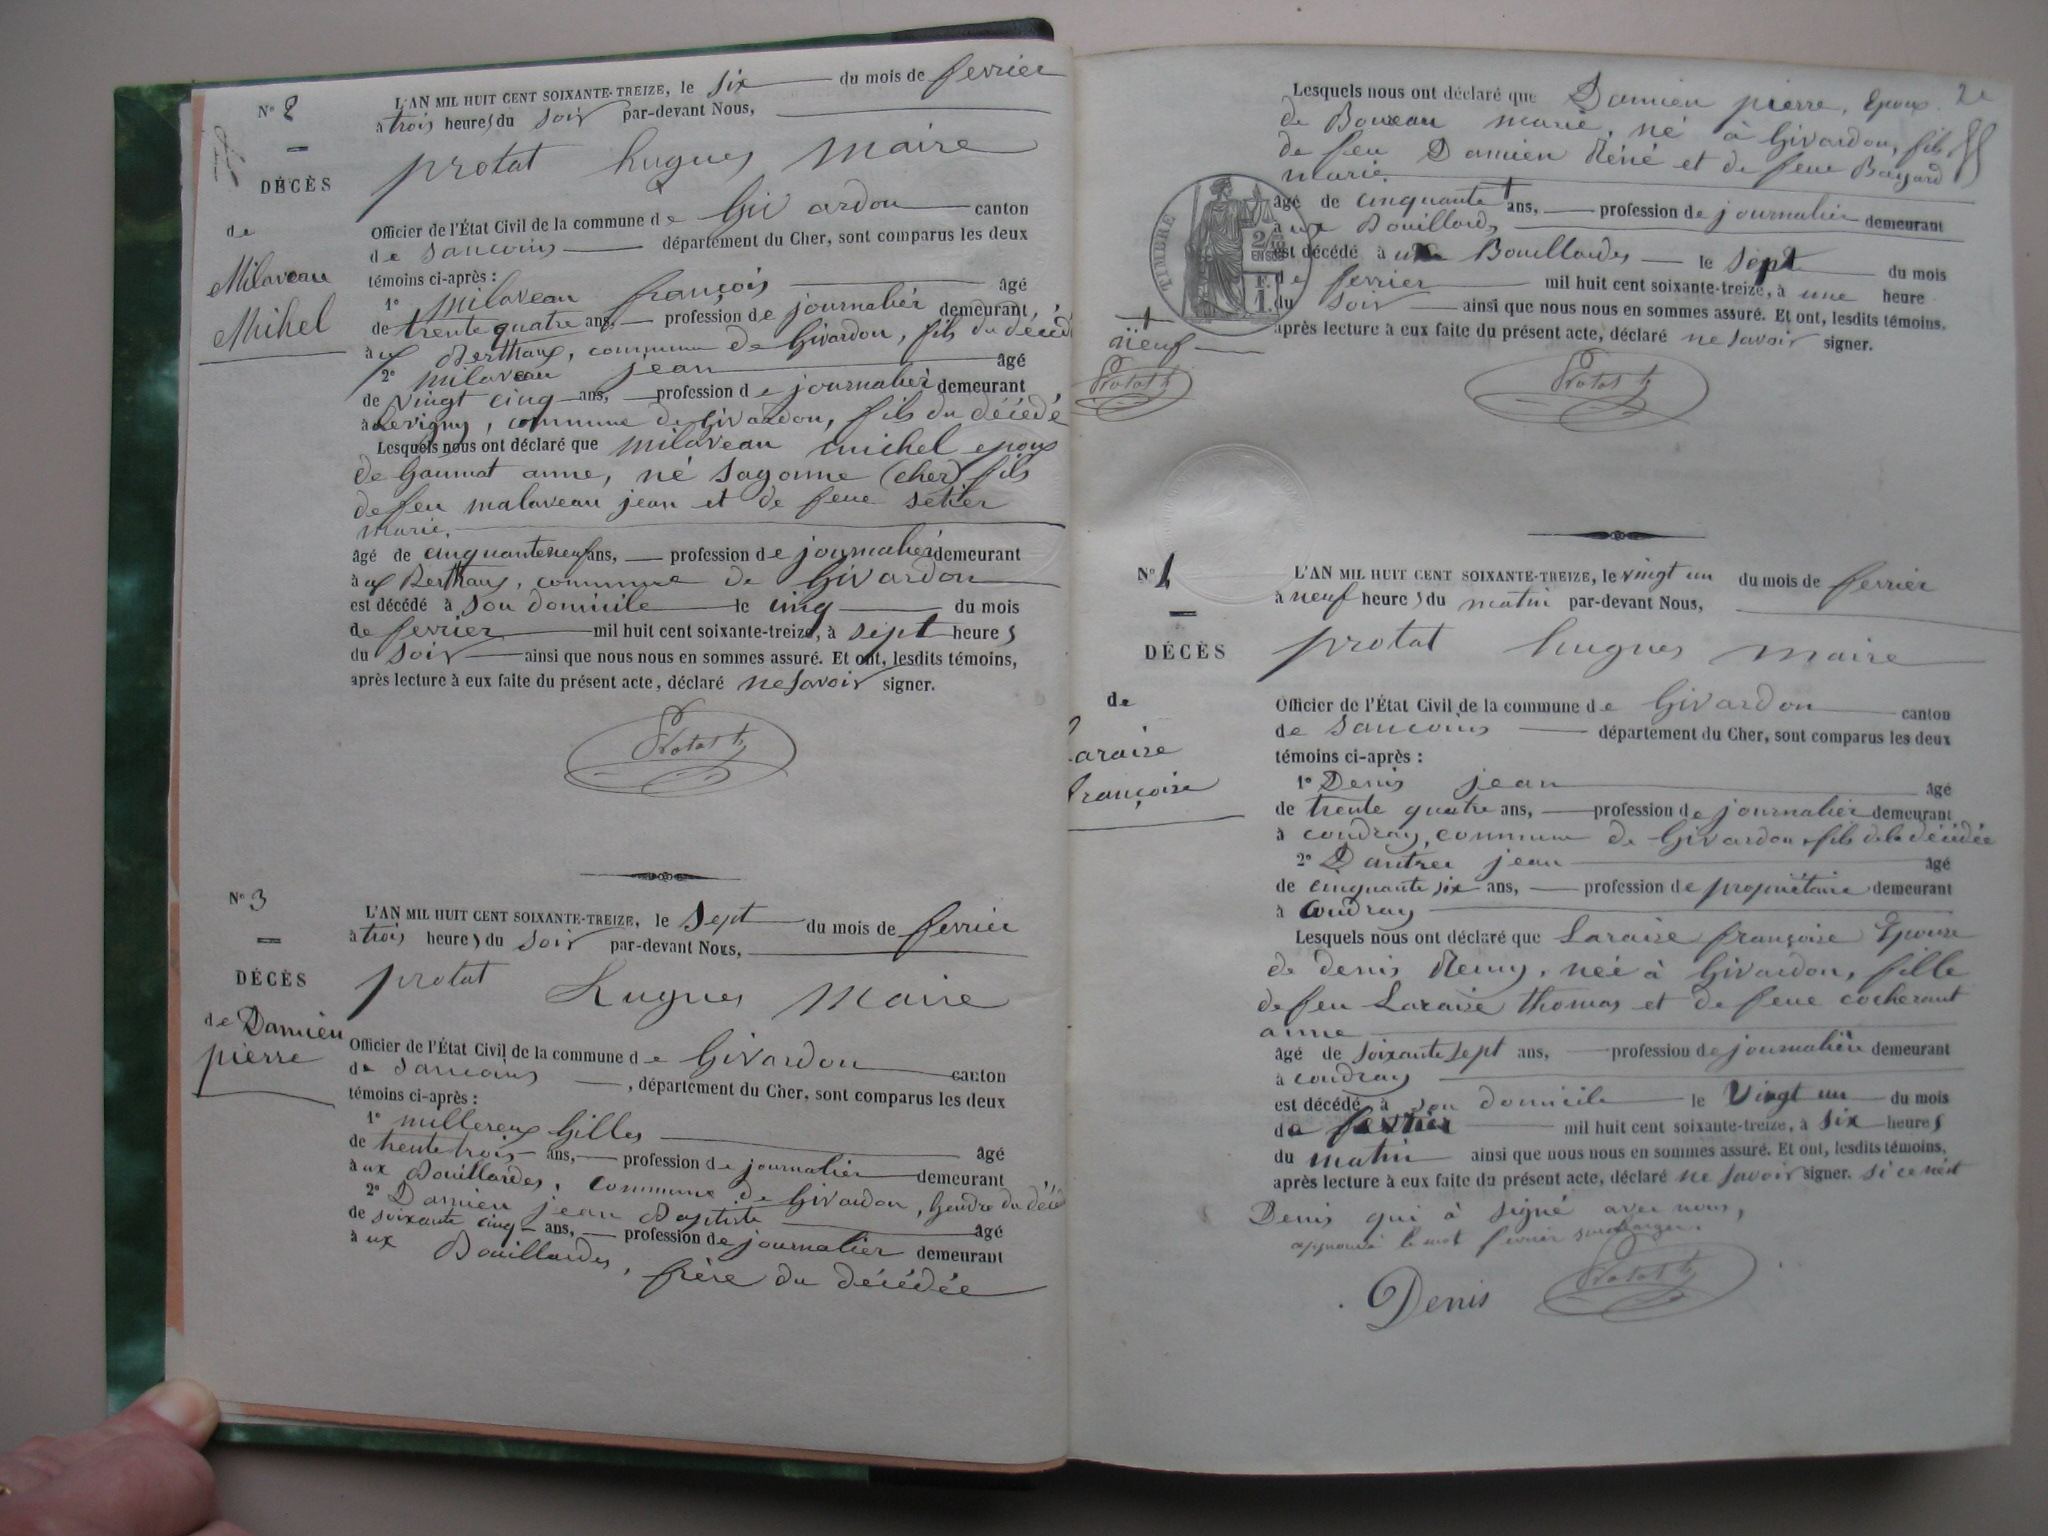 N° 2
DÉCÈS
de
Milaveau
Mihel
L'AN MIL HUIT CENT SOIXANTE-TREIZE, le six du mois de fevrier
à trois heures du soir par-devant Nous,
protat hugues maire
Officier de l'État Civil de la commune de Givardon canton
de Sancoins département du Cher, sont comparus les deux
témoins ci-après :
1° milaveau françois âgé
de trente quatre ans, profession de journalier demeurant
à ux Berthaux, commune de Givardon, fils du décédé
2° milaveau jean âgé
de vingt cinq ans, profession de journalier demeurant
à Levigny, commune de Givardon, fils du décédé
Lesquels nous ont déclaré que milaveau michel epoux
de Gaumat anne, né Sagonne (cher) fils
de feu malaveau jean et de feue setier
marie,
âgé de cinquante neuf ans, profession de journalier demeurant
à ux Berthaux, commune de Givardon
est décédé à son domicile le cinq du mois
de fevrier mil huit cent soixante-treize, à sept heures
du soir ainsi que nous nous en sommes assuré. Et ont, lesdits témoins,
après lecture à eux faite du présent acte, déclaré ne savoir signer.
Protat h
N° 3
DÉCÈS
de Damien
pierre
L'AN MIL HUIT CENT SOIXANTE-TREIZE, le sept du mois de fevrier
à trois heures du soir par-devant Nous,
protat Hugues Maire
Officier de l'État Civil de la commune de Givardon canton
de Sancoins, département du Cher, sont comparus les deux
témoins ci-après :
1° millereux Gilles âgé
de trente trois ans, profession de journalier demeurant
à ux Bouillardes, commune de Givardon, Gendre du décé
2° Damien jean Baptiste âgé
de soixante cinq ans, profession de journalier demeurant
à ux Bouillardes, frère du décédée
2e
Lesquels nous ont déclaré que Damien pierre, Epoux
de Boureau marie, né à Givardon, fils
de feu Damien Réné et de feue Bayard
marie,
âgé de cinquante + ans, profession de journalier demeurant
à ux Bouillards
est décédé à ux Bouillardes le sept du mois
de fevrier mil huit cent soixante-treize, à une heure
du soir ainsi que nous nous en sommes assuré. Et ont, lesdits témoins,
après lecture à eux faite du présent acte, déclaré ne savoir signer.
TIMBRE
2/10
EN SUS
1 F.
+
neuf
Protat h
Protat h
N° 4
DÉCÈS
de
Laraise
françoise
L'AN MIL HUIT CENT SOIXANTE-TREIZE, le vingt un du mois de fevrier
à neuf heures du matin par-devant Nous,
protat hugues maire
Officier de l'État Civil de la commune de Givardon canton
de Sancoins département du Cher, sont comparus les deux
témoins ci-après :
1° Denis jean âgé
de trente quatre ans, profession de journalier demeurant
à coudray, commune de Givardon, fils de la décédée
2° Dautrer jean âgé
de cinquante six ans, profession de propriétaire demeurant
à coudray
Lesquels nous ont déclaré que Laraise françoise Epouse
de denis Remy, née à Givardon, fille
de feu Laraise thomas et de feue cocherant
anne
âgé de soixante sept ans, profession de journalière demeurant
à coudray
est décédé à son domicile le vingt un du mois
de fevrier mil huit cent soixante-treize, à six heures
du matin ainsi que nous nous en sommes assuré. Et ont, lesdits témoins,
après lecture à eux faite du présent acte, déclaré ne savoir signer. si ce n'est
Denis qui à signé avec nous,
approuvé le mot fevrier surchargé.
Denis
Protat h